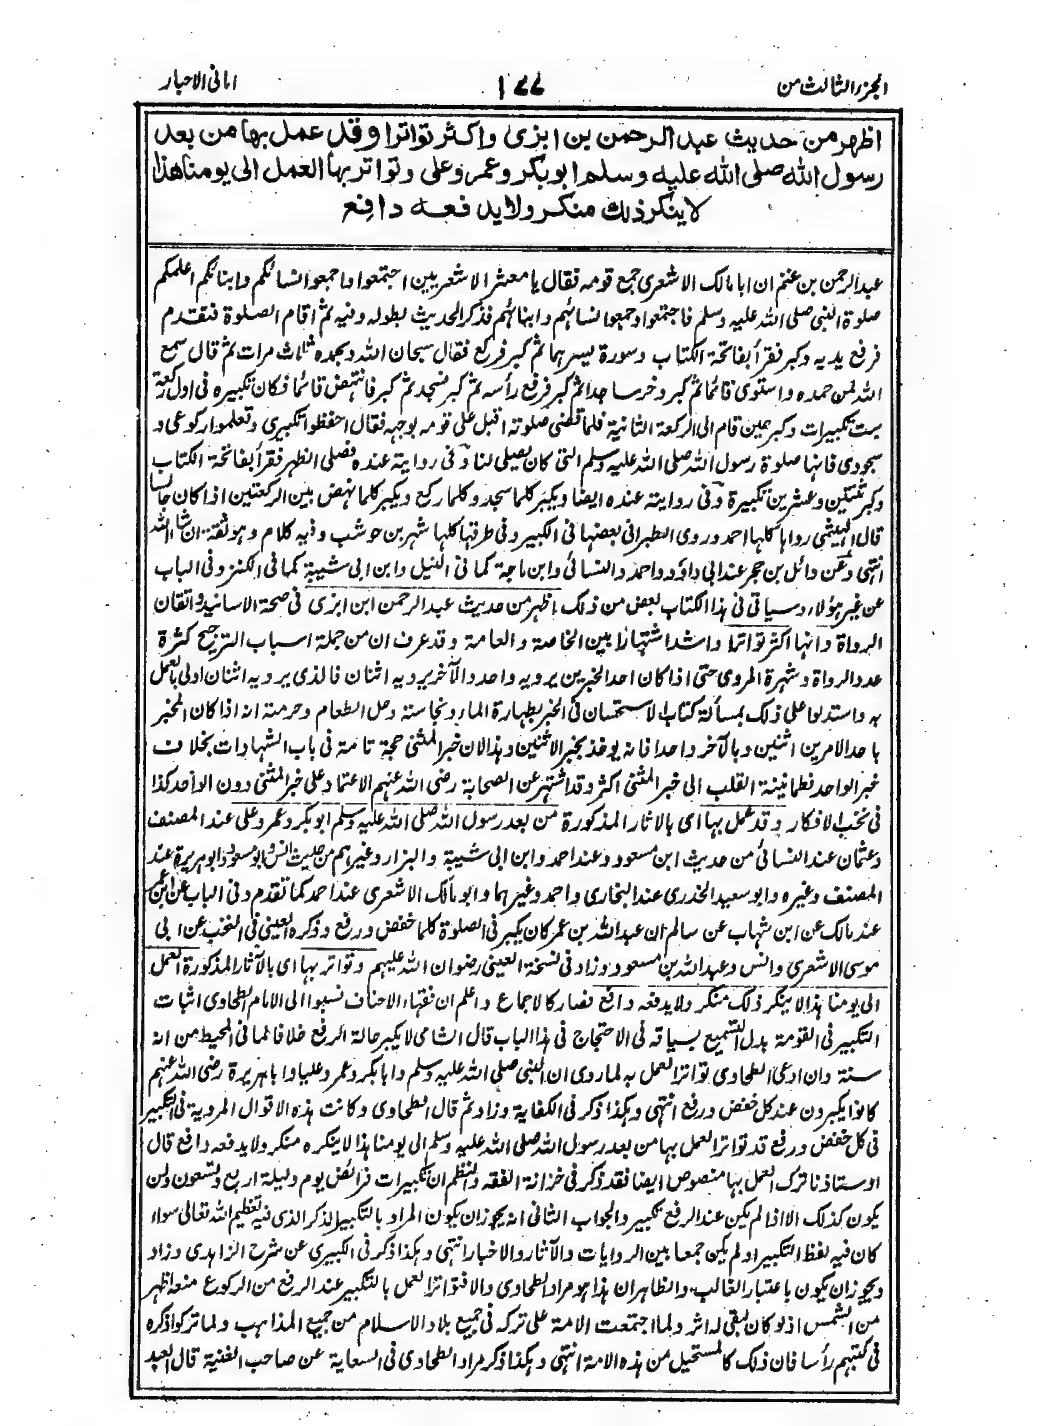 الجزء الثالث من
١٧٧
امانی الاحبار
اظهر من حدیث عبد الرحمن بن ابزی واکثر تواترا وقد عمل بها من بعد
رسول الله صلی الله علیه وسلم ابو بکر وعمر وعلی وتواتر بها العمل الی یومنا هذا
لا ینکر ذلك منکر ولا یدفعه دافع
عبد الرحمن بن غنم ان ابا مالک الاشعری جمع قومه فقال یا معشر الاشعریین اجتمعوا واجمعوا نسائکم وابنائکم اعلمکم
صلوة النبی صلی الله علیه وسلم فاجتمعوا وجمعوا نسائهم وابنائهم فذکر الحدیث بطوله وفیه ثم اقام الصلوة فتقدم
فرفع یدیه وکبر فقرأ بفاتحة الکتاب وسورة یسرهما ثم کبر فرکع فقال سبحان الله وبحمده ثلاث مرات ثم قال سمع
الله لمن حمده واستوی قائما ثم کبر وخر ساجدا ثم کبر فرفع رأسه ثم کبر فسجد ثم کبر فانتهض قائما فکان تکبیره فی اول رکعة
ست تکبیرات وکبر حین قام الی الرکعة الثانیة فلما قضی صلوته اقبل علی قومه بوجهه فقال احفظوا تکبیری وتعلموا رکوعی و
سجودی فانها صلوة رسول الله صلی الله علیه وسلم التی کان یصلی لنا وفی روایة عنده فصلی الظهر فقرأ بفاتحة الکتاب
وکبر ثنتین وعشرین تکبیرة وفی روایة عنده ایضا ویکبر کلما سجد وکلما رکع ویکبر کلما نهض بین الرکعتین اذا کان جالسا
قال الهیثمی رواها کلها احمد وروی الطبرانی بعضها فی الکبیر وفی طرقها کلها شهر بن حوشب وفیه کلام وهو ثقة ان شاء الله
انتهی وعن وائل بن حجر عند ابی داؤد واحمد والنسائی وابن ماجة کما فی النیل وابن ابی شیبة کما فی الکنز وفی الباب
عن غیر هؤلاء وسیاتی فی هذا الکتاب بعض من ذلک اظهر من حدیث عبد الرحمن ابن ابزی فی صحة الاسانید واتقان
الرواة وانها اکثر تواترا واشد اشتهارا بین الخاصة والعامة وقد عرف ان من جملة اسباب الترجیح کثرة
عدد الرواة وشهرة المروی حتی اذا کان احد الخبرین یرویه واحد والآخر یرویه اثنان فالذی یرویه اثنان اولی بالعمل
به واستدلوا علی ذلک بمسألة کتاب الاستحسان فی الخبر بطهارة الماء ونجاسته وحل الطعام وحرمته انه اذا کان المخبر
باحد الامرین اثنین وبالآخر واحدا فانه یوخذ بخبر الاثنین وهذا لان خبر المثنی حجة تامة فی باب الشهادات بخلاف
خبر الواحد فطمانینة القلب الی خبر المثنی اکثر وقد اشتهر عن الصحابة رضی الله عنهم الاعتماد علی خبر المثنی دون الواحد کذا
فی نخب الافکار وقد عمل بها ای بالاثار المذکورة من بعد رسول الله صلی الله علیه وسلم ابو بکر وعمر وعلی عند المصنف
وعثمان عند النسائی من حدیث ابن مسعود وعند احمد وابن ابی شیبة والبزار وغیرهم من حدیث انس وابو مسعود وابو هریرة عند
المصنف وغیره وابو سعید الخدری عند البخاری واحمد وغیرهما وابو مالک الاشعری عند احمد کما تقدم وفی الباب عن ابن عمر
عند مالک عن ابن شهاب عن سالم ان عبد الله بن عمر کان یکبر فی الصلوة کلما خفض ورفع وذکره العینی فی النخب عن ابی
موسی الاشعری وانس وعبد الله بن مسعود وزاد فی نسخة العینی رضوان الله علیهم وتواتر بها ای بالآثار المذکورة العمل
الی یومنا هذا لا ینکر ذلک منکر ولا یدفعه دافع فصار کالاجماع واعلم ان فقهاء الاحناف نسبوا الی الامام الطحاوی اثبات
التکبیر فی القومة بدل التسمیع بسیاقه فی الاحتجاج فی هذا الباب قال الشامی لا یکبر حالة الرفع خلافا لما فی المحیط من انه
سنة وان ادعی الطحاوی تواتر العمل به لما روی ان النبی صلی الله علیه وسلم وابا بکر وعمر وعلیا وابا هریرة رضی الله عنهم
کانوا یکبرون عند کل خفض ورفع انتهی وهکذا ذکر فی الکفایة وزاد ثم قال الطحاوی وکانت هذه الاقوال المرویة فی التکبیر
فی کل خفض ورفع قد تواتر العمل بها من بعد رسول الله صلی الله علیه وسلم الی یومنا هذا لا ینکره منکر ولا یدفعه دافع قال
اوستاذنا ترک العمل بها منصوص ایضا فقد ذکر فی خزانة الفقه والنظم ان تکبیرات فرائض یوم ولیلة اربع وتسعون ولن
یکون کذلک الا اذا لم یکن عند الرفع تکبیر والجواب الثانی انه یجوز ان یکون المراد بالتکبیر الذکر الذی فیه تعظیم الله تعالی سواء
کان فیه لفظ التکبیر او لم یکن جمعا بین الروایات والآثار والاخبار انتهی وهکذا ذکر فی الکبیری عن شرح الزاهدی وزاد
ویجوز ان یکون باعتبار الغالب والظاهر ان هذا هو مراد الطحاوی والا فتواتر العمل بالتکبیر عند الرفع من الرکوع منعه اظهر
من الشمس اذ لو کان لبقی له اثر ولما اجتمعت الامة علی ترکه فی جمیع بلاد الاسلام من جمیع المذاهب ولما ترکوا ذکره
فی کتبهم رأسا فان ذلک کالمستحیل من هذه الامة انتهی وهکذا ذکر مراد الطحاوی فی السعایة عن صاحب الغنیة قال العبد